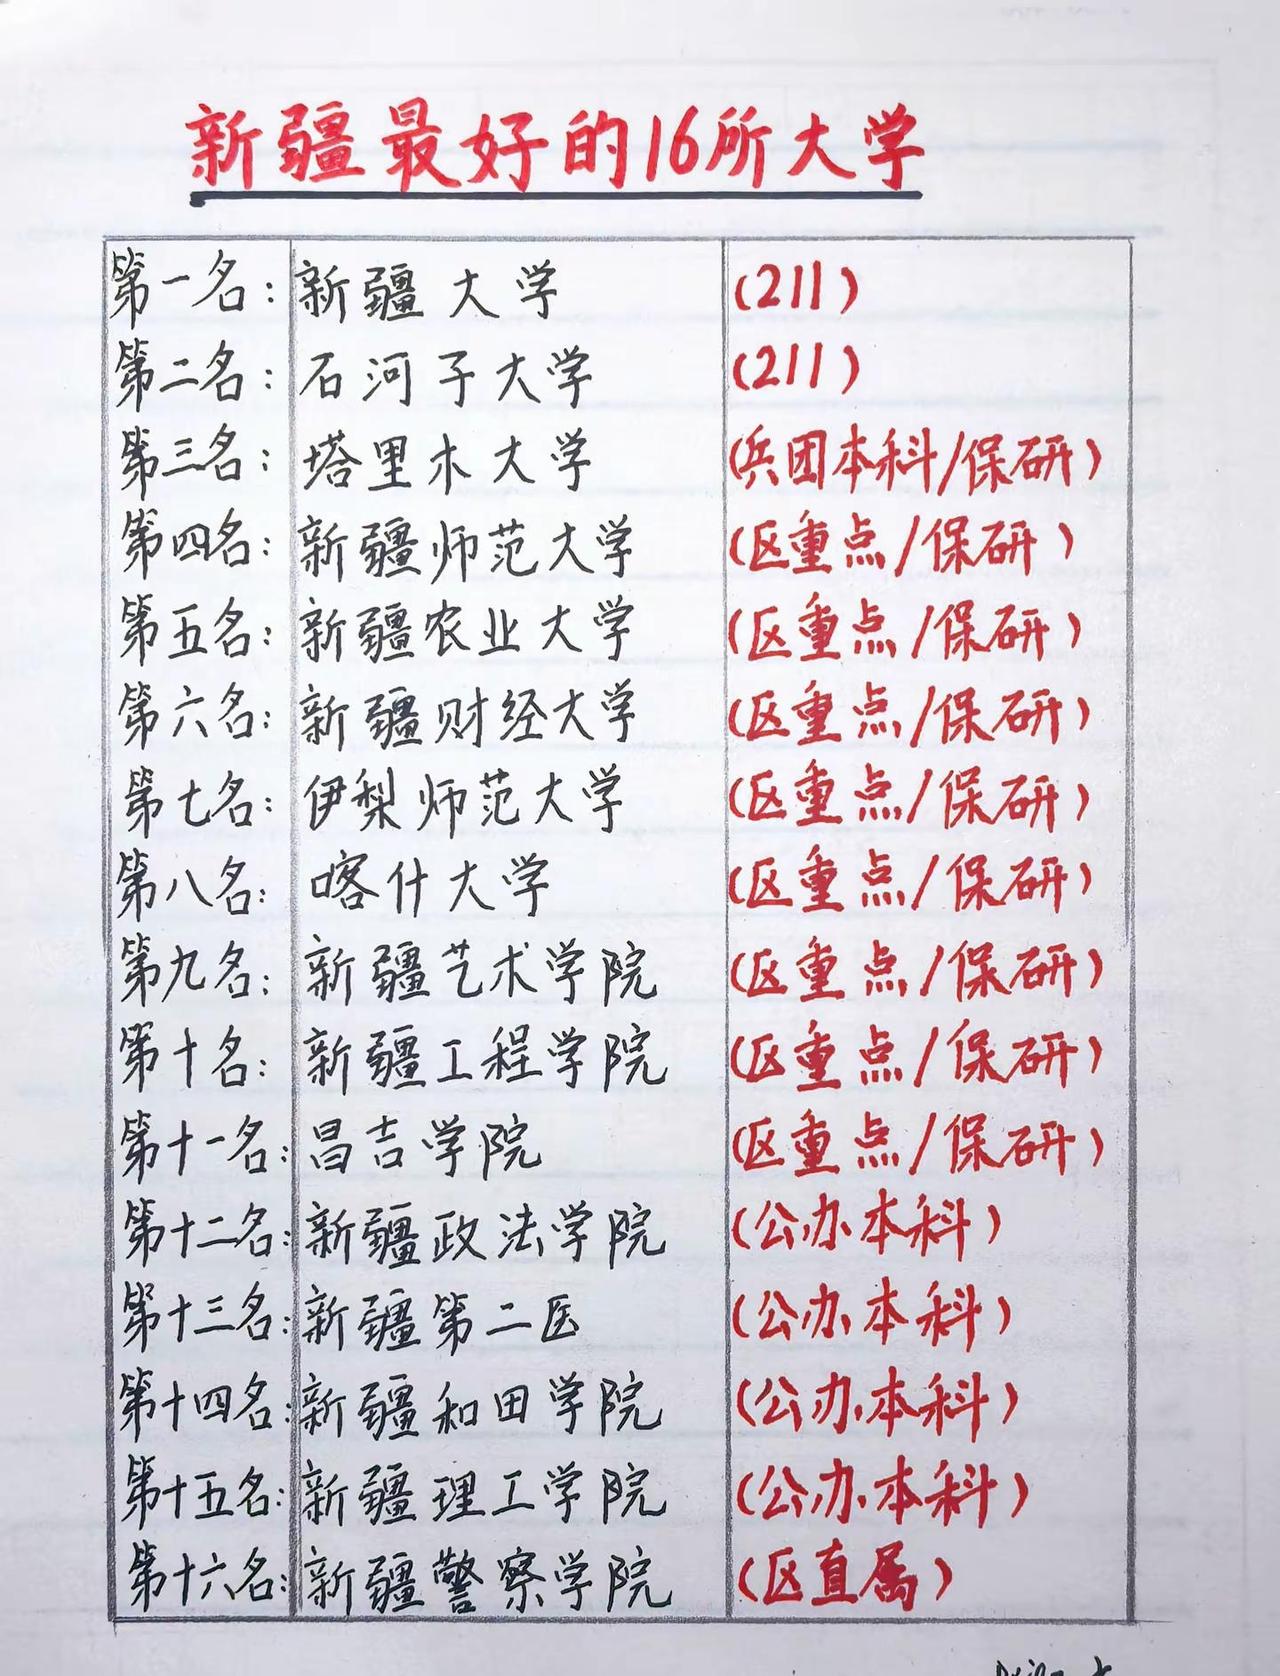 新疆最好的16所大学
第一名: 新疆大学 (211)
第二名: 石河子大学 (211)
第三名: 塔里木大学 (兵团本科/保研)
第四名: 新疆师范大学 (区重点/保研)
第五名: 新疆农业大学 (区重点/保研)
第六名: 新疆财经大学 (区重点/保研)
第七名: 伊梨师范大学 (区重点/保研)
第八名: 喀什大学 (区重点/保研)
第九名: 新疆艺术学院 (区重点/保研)
第十名: 新疆工程学院 (区重点/保研)
第十一名: 昌吉学院 (区重点/保研)
第十二名: 新疆政法学院 (公办本科)
第十三名: 新疆第二医 (公办本科)
第十四名: 新疆和田学院 (公办本科)
第十五名: 新疆理工学院 (公办本科)
第十六名: 新疆警察学院 (区直属)